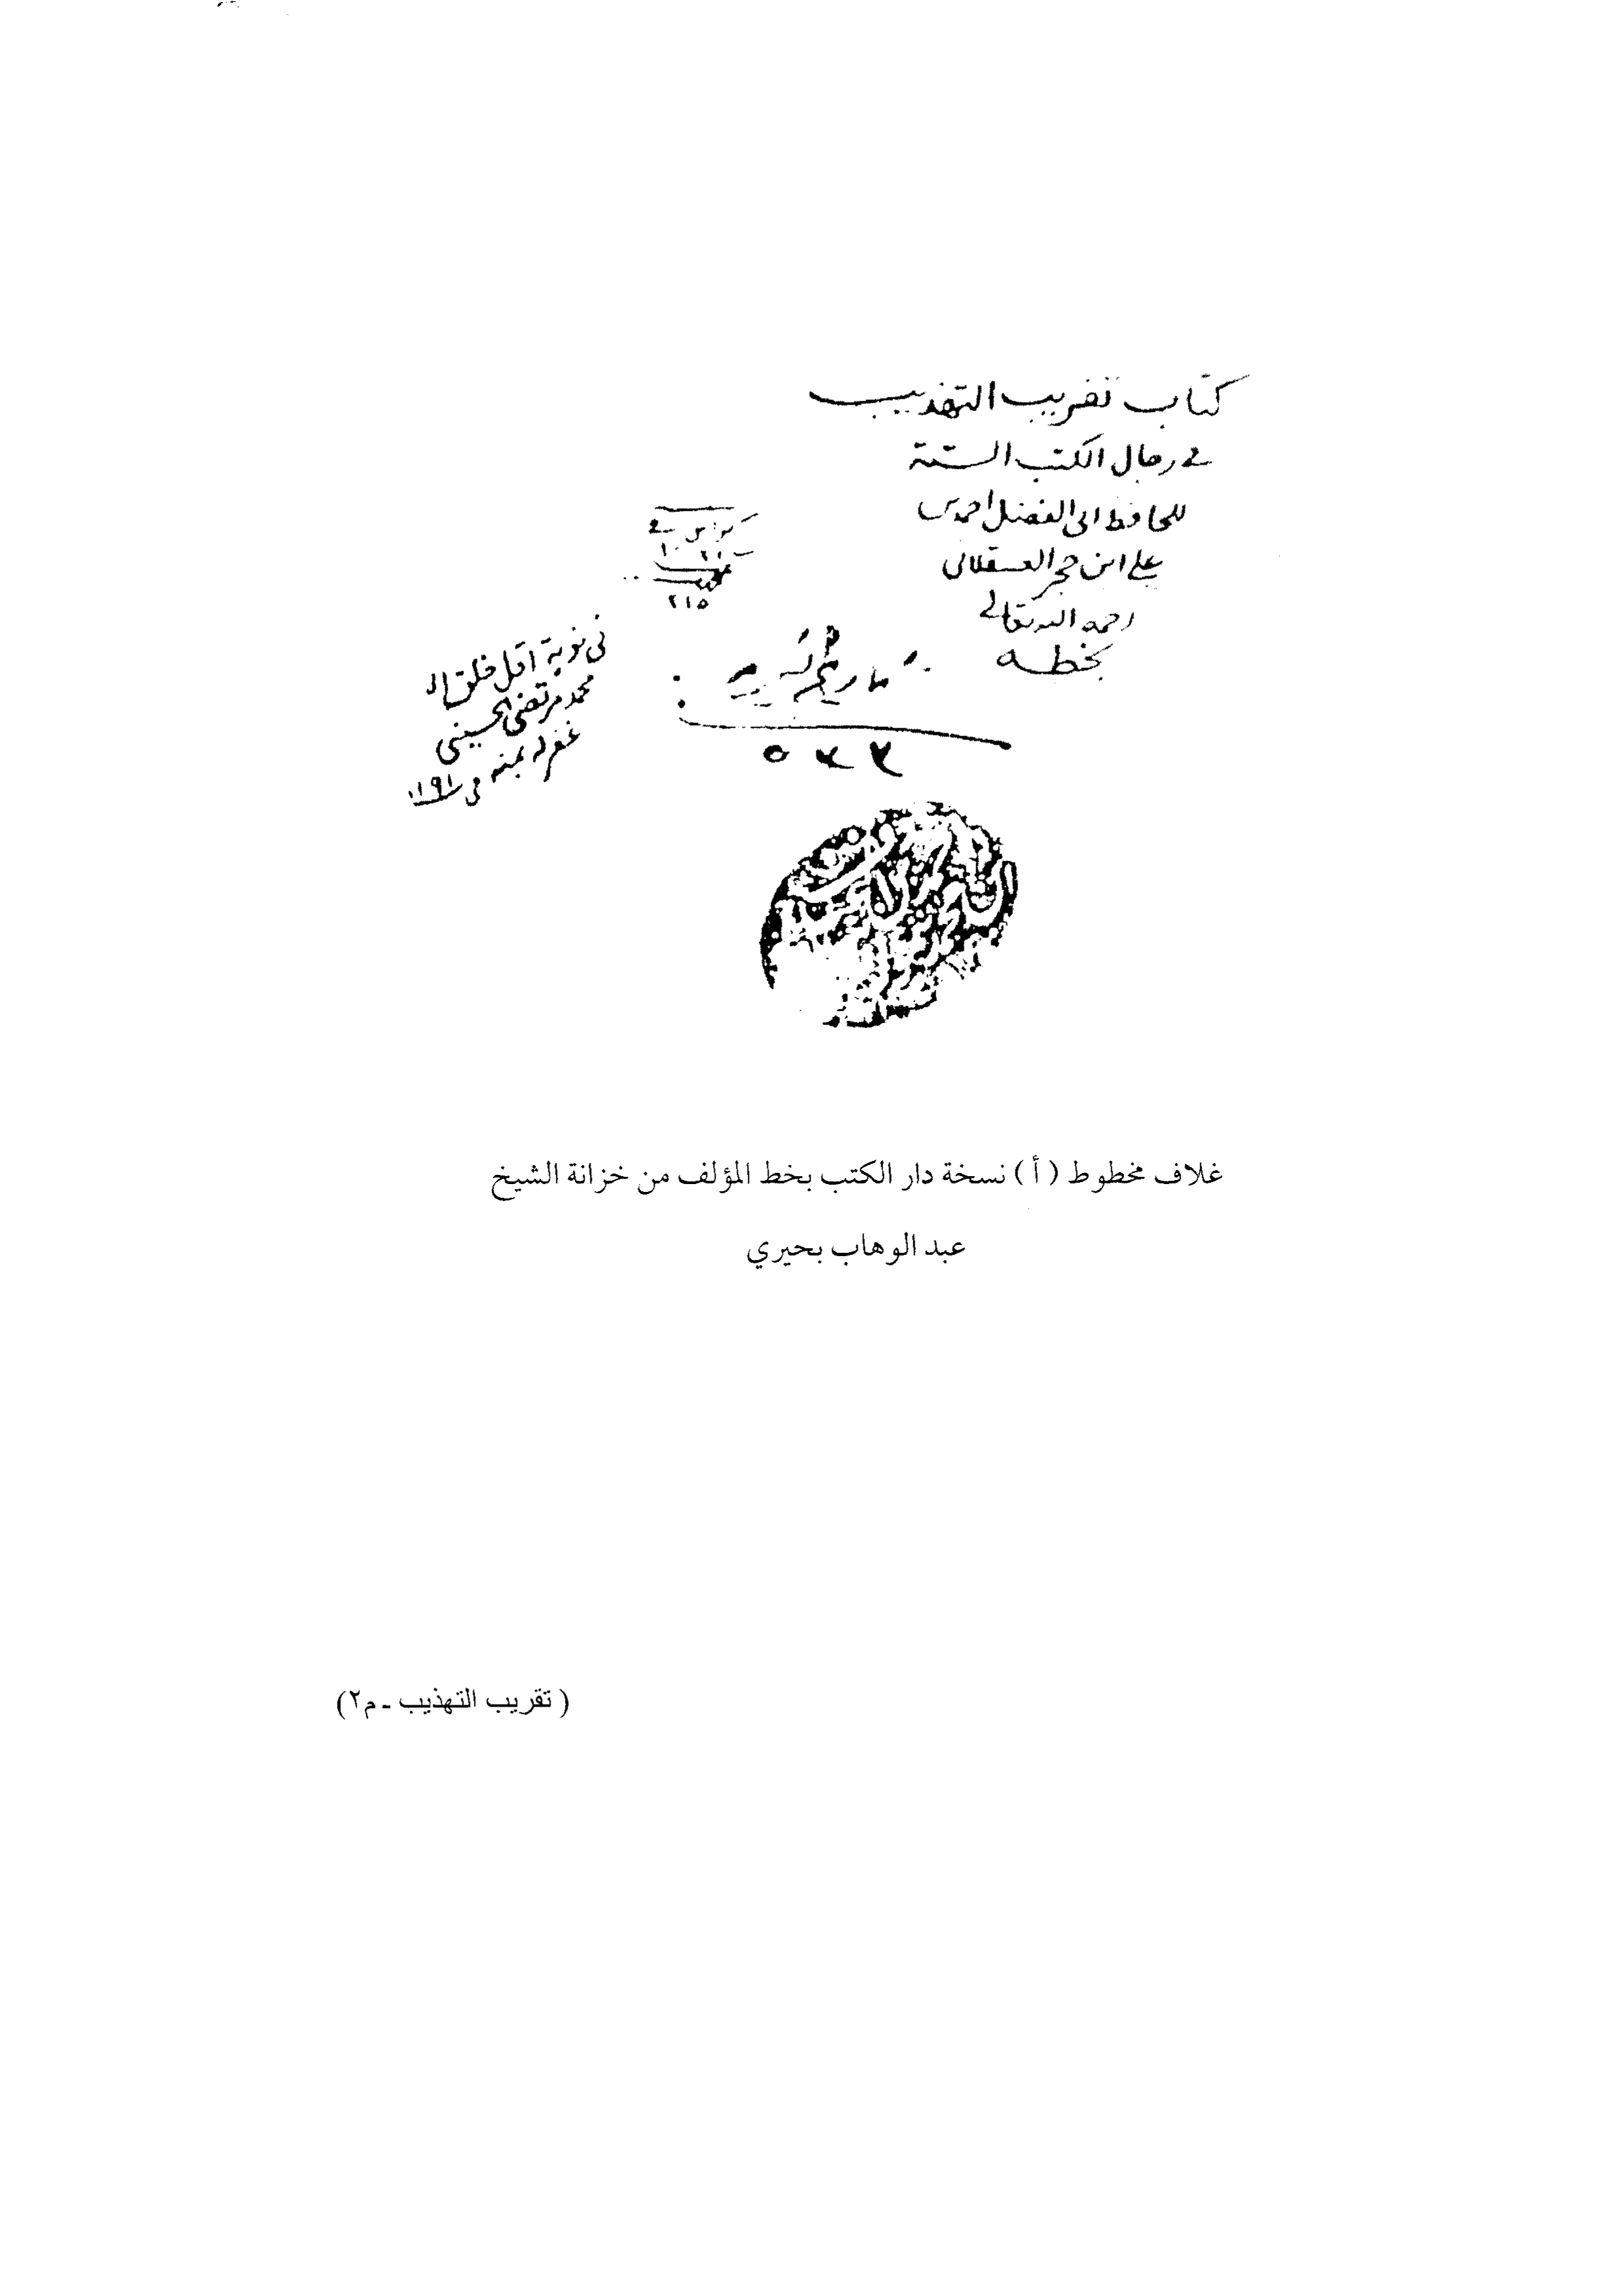 كتاب تقريب التهذيب
في رجال الكتب الستة
للحافظ ابي الفضل احمد بن
علي ابن حجر العسقلاني
رحمه الله تعالى
بخطه
٢١٥
في نوبة اقل خلق الله
محمد مرتضى الحسيني
غفر له بمنه في ١١٩١
تاريخ
٥٣٣
غلاف مخطوط ( أ ) نسخة دار الكتب بخط المؤلف من خزانة الشيخ
عبد الوهاب بحيري
( تقريب التهذيب ـ م٢)